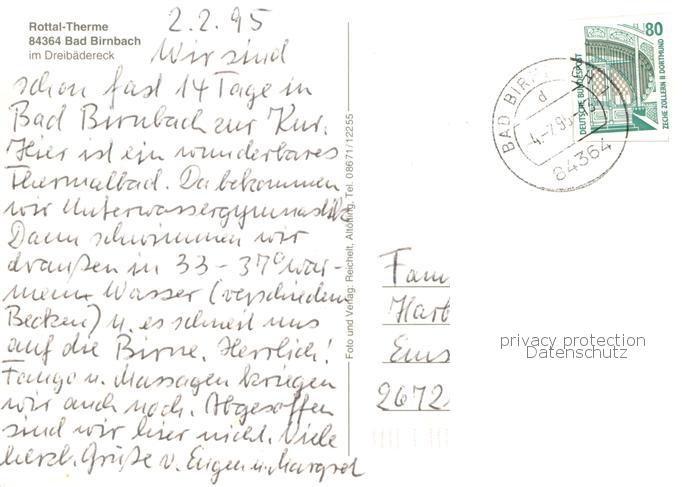 Rottal-Therme
84364 Bad Birnbach
im Dreibädereck
2.2.95
Wir sind
schon fast 14 Tage in
Bad Birnbach zur Kur.
Hier ist ein wunderbares
Thermalbad. Da bekommen
wir Unterwassergymnastik
Dann schwimmen wir
draußen in 33 - 37° war-
mem Wasser (verschiedene
Becken) u. es schneit uns
auf die Birne. Herrlich!
Fango u. Massagen kriegen
wir auch noch. Abgesoffen
sind wir hier nicht. Viele
herzl. Grüße v. Eugen u. Margret
Foto und Verlag: Reichelt, Altötting, Tel. 08671/12255
80
DEUTSCHE BUNDESPOST
ZECHE ZOLLERN II DORTMUND
BAD BIRNBACH
d
84364
Fam
Harb
Ems
2672
privacy protection
Datenschutz